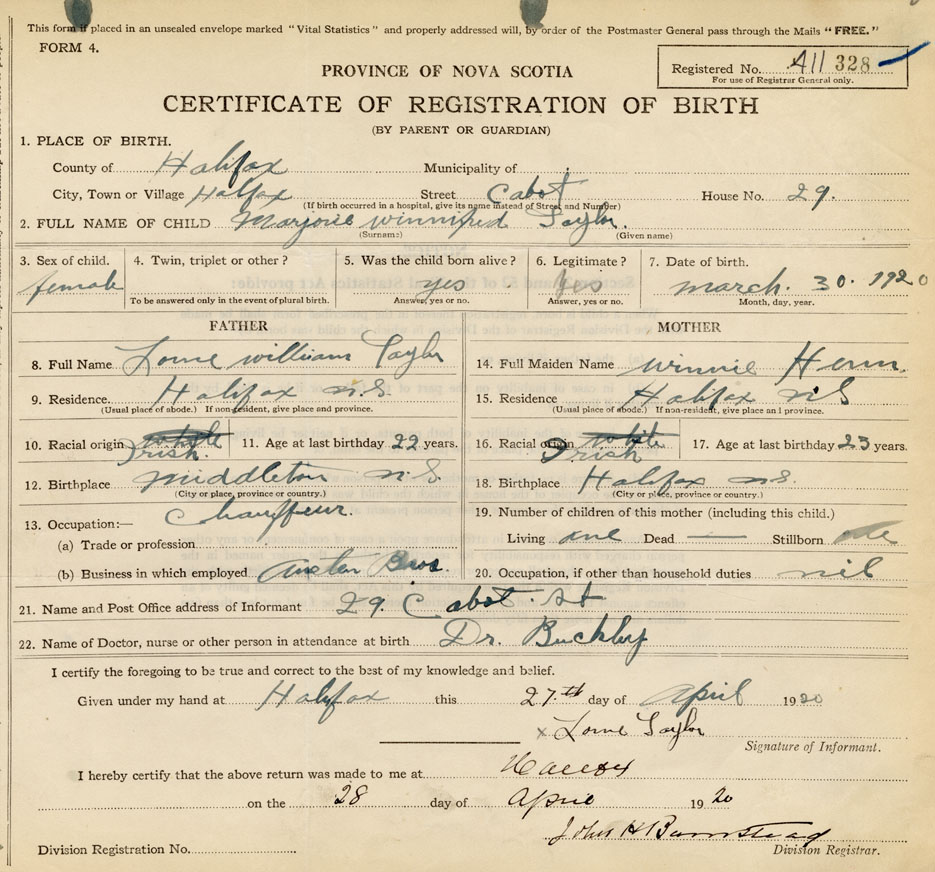 This form if placed in an unsealed envelope marked "Vital Statistics" and properly addressed will, by order of the Postmaster General pass through the Mails "FREE."
FORM 4.
Registered No. A11 328
For use of Registrar General only.
PROVINCE OF NOVA SCOTIA
CERTIFICATE OF REGISTRATION OF BIRTH
(BY PARENT OR GUARDIAN)
1. PLACE OF BIRTH.
County of Halifax Municipality of
City, Town or Village Halifax Street Cabot House No. 29.
(If birth occurred in a hospital, give its name instead of Street and Number)
2. FULL NAME OF CHILD Marjorie winnifred Taylor.
(Surname) (Given name)
3. Sex of child. 4. Twin, triplet or other? 5. Was the child born alive? 6. Legitimate? 7. Date of birth.
female yes yes march. 30. 1920
To be answered only in the event of plural birth. Answer, yes or no. Answer, yes or no. Month, day, year.
FATHER MOTHER
8. Full Name Lorne william Taylor 14. Full Maiden Name winnie
9. Residence. Halifax n.s. 15. Residence Halifax n S
(Usual place of abode.) If non-resident, give place and province. (Usual place of abode.) If non-resident, give place and province.
10. Racial origin white Irish. 11. Age at last birthday 22 years. 16. Racial origin white Irish 17. Age at last birthday 23 years.
12. Birthplace middleton n.S. 18. Birthplace Halifax n.S.
(City or place, province or country.) (City or place, province or country.)
13. Occupation:— Chauffeur. 19. Number of children of this mother (including this child.)
(a) Trade or profession Living one Dead — Stillborn
(b) Business in which employed Bros. 20. Occupation, if other than household duties nil
21. Name and Post Office address of Informant 29. Cabot St
22. Name of Doctor, nurse or other person in attendance at birth Dr. Buckley
I certify the foregoing to be true and correct to the best of my knowledge and belief.
Given under my hand at Halifax this 27.th day of April 1920
x Lorne Taylor
Signature of Informant.
I hereby certify that the above return was made to me at Halifax
on the 28 day of April 1920
John H Barnstead
Division Registration No. Division Registrar.